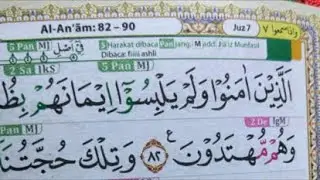 Al-An'âm: 82 – 90
Juz 7
وإذا سمعوا ٧
5 Pan MJ
5 Harakat dibaca Panjang. Madd Jaiz Munfasil
Dibaca: fiini ashli
2 Sa IkS
5 Pan MJ
الَّذِيْنَ اٰمَنُوْا وَلَمْ يَلْبِسُوْٓا اِيْمَانَهُمْ بِظُ
Pan MJ
2 De IgM
وَهُمْ مُّهْتَدُوْنَ ࣖ ٨٢ وَتِلْكَ حُجَّتُنَآ